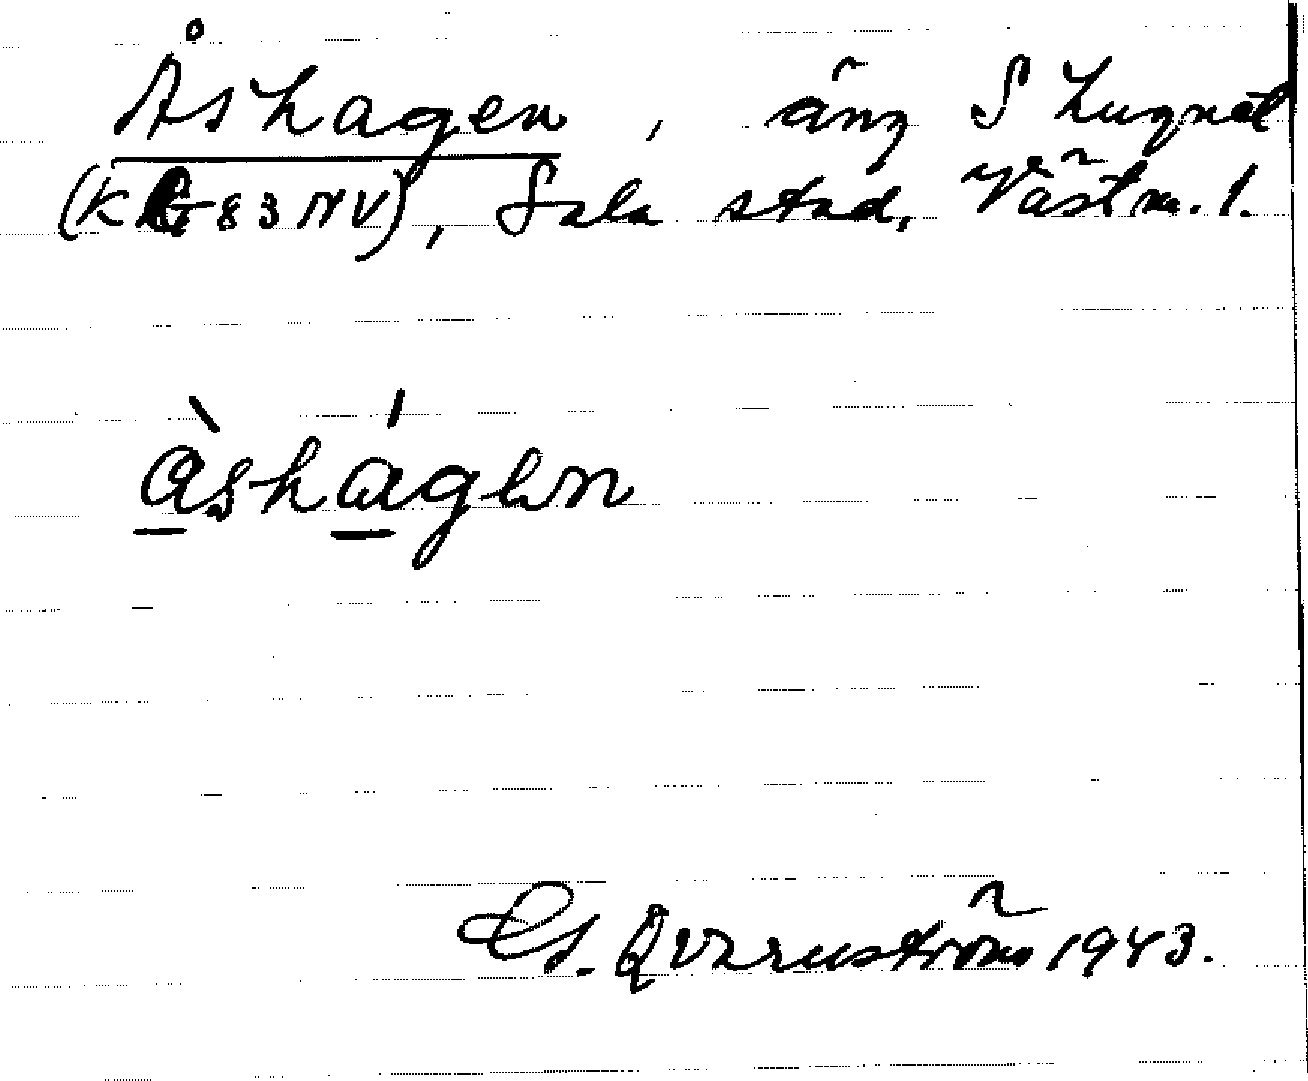 Åshagen, äng S Lugnet
(K G 83 NV), Sala stad, Västm. l.
àshágen
Qvarnström 1943.